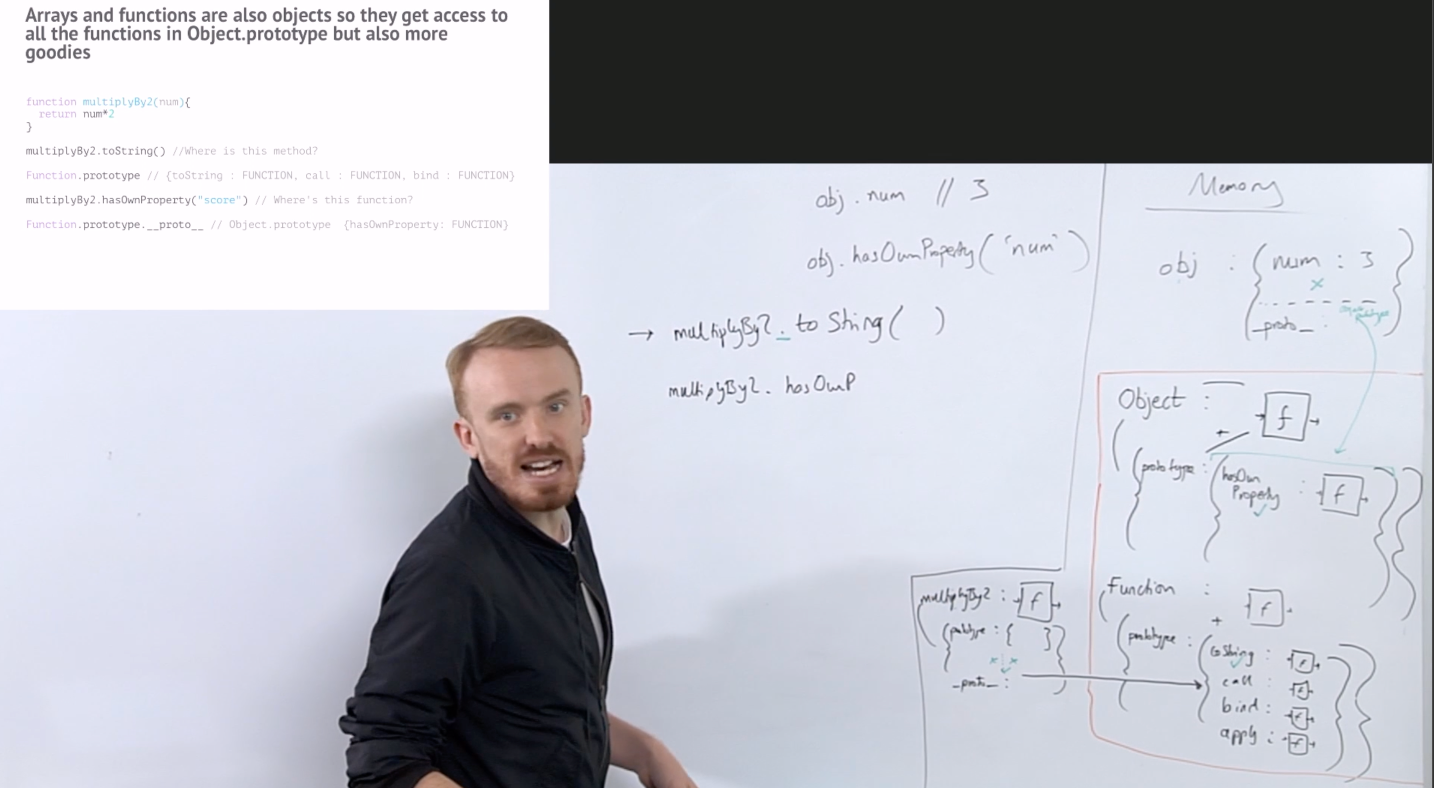 Arrays and functions are also objects so they get access to
all the functions in Object.prototype but also more
goodies
function multiplyBy2(num){
return num*2
}
multiplyBy2.toString() //Where is this method?
Function.prototype // {toString : FUNCTION, call : FUNCTION, bind : FUNCTION}
multiplyBy2.hasOwnProperty("score") // Where's this function?
Function.prototype.__proto__ // Object.prototype {hasOwnProperty: FUNCTION}
obj.num // 3
obj.hasOwnProperty('num')
→ multiplyBy2.toString( )
multiplyBy2.hasOwnP
Memory
obj : { num : 3 }
_proto_ :
Object : f
+
{ prototype : { hasOwn
Property : f
multiplyBy2 : f
prototype : { }
_proto_ :
Function : f
+
prototype : { toString : f
call : f
bind : f
apply : f